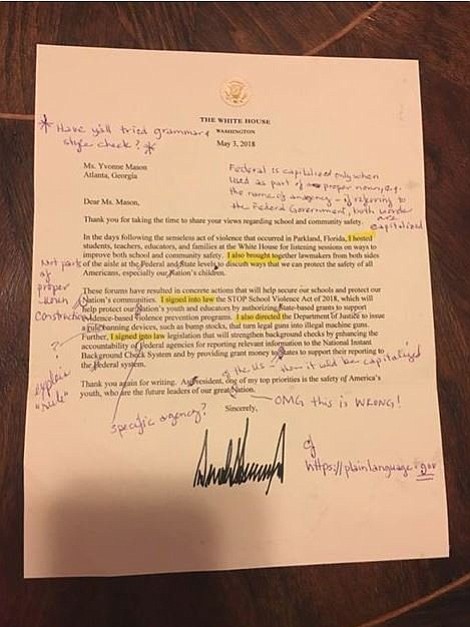 THE WHITE HOUSE
WASHINGTON
May 3, 2018
* Have y'all tried grammar &
style check? *
Ms. Yvonne Mason
Atlanta, Georgia
Federal is capitalized only when
used as part of a proper noun, e.g.
the name of an agency - if referring to
the Federal Government, both words
are
capitalized
Dear Ms. Mason,
Thank you for taking the time to share your views regarding school and community safety.
In the days following the senseless act of violence that occurred in Parkland, Florida, I hosted
students, teachers, educators, and families at the White House for listening sessions on ways to
improve both school and community safety. I also brought together lawmakers from both sides
of the aisle at the Federal and State levels to discuss ways that we can protect the safety of all
Americans, especially our Nation's children.
Not part
of
proper
noun
construction
These forums have resulted in concrete actions that will help secure our schools and protect our
Nation's communities. I signed into law the STOP School Violence Act of 2018, which will
help protect our Nation's youth and educators by authorizing State-based grants to support
evidence-based violence prevention programs. I also directed the Department of Justice to issue
a rule banning devices, such as bump stocks, that turn legal guns into illegal machine guns.
Further, I signed into law legislation that will strengthen background checks by enhancing the
accountability of Federal agencies for reporting relevant information to the National Instant
Background Check System and by providing grant money to States to support their reporting to
the Federal system.
?
explain
"rule"
of the US
now it would be capitalized
Thank you again for writing. As President, one of my top priorities is the safety of America's
youth, who are the future leaders of our great Nation.
OMG this is WRONG!
Sincerely,
specific agency?
https://plainlanguage.gov